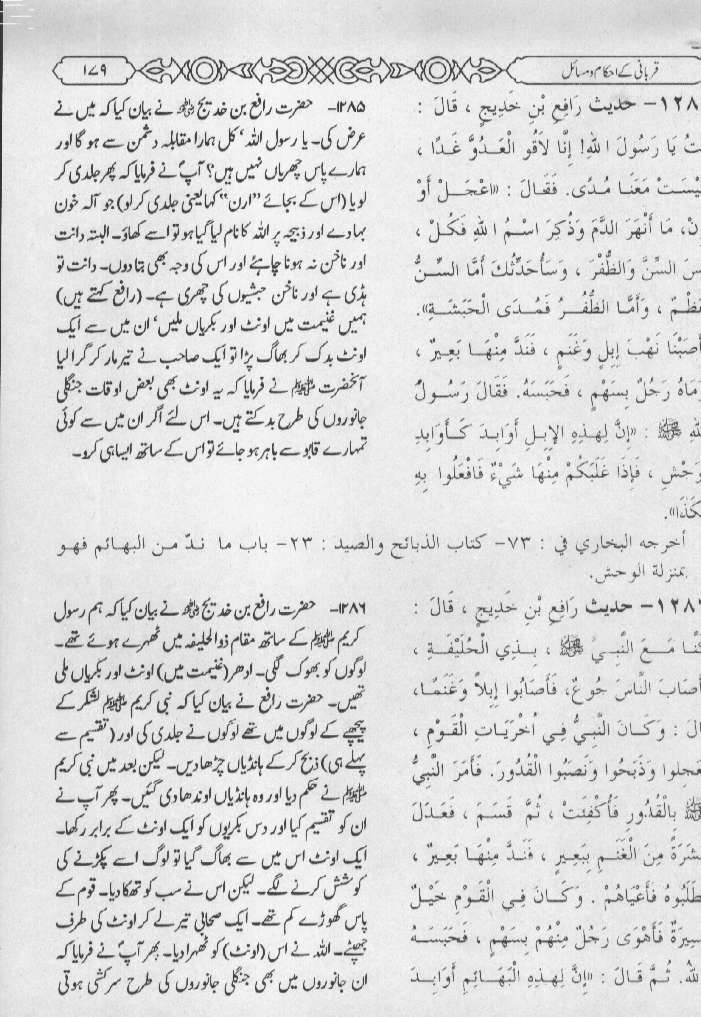 قربانی کے احکام و مسائل
۱۷۹
حديث رَافِعِ بْنِ خَدِيجٍ ، قَالَ :
يَا رَسُولَ اللهِ! إِنَّا لَاقُو الْعَدُوِّ غَدًا ،
مَعَنَا مُدًى. فَقَالَ : «اعْجَلْ أَوْ
مَا أَنْهَرَ الدَّمَ وَذُكِرَ اسْمُ اللهِ فَكُلْ ،
السِّنَّ وَالظُّفُرَ ، وَسَأُحَدِّثُكَ أَمَّا السِّنُّ
، وَأَمَّا الظُّفُرُ فَمُدَى الْحَبَشَةِ».
نَهْبَ إِبِلٍ وَغَنَمٍ ، فَنَدَّ مِنْهَا بَعِيرٌ ،
رَجُلٌ بِسَهْمٍ ، فَحَبَسَهُ. فَقَالَ رَسُولُ
ﷺ : «إِنَّ لِهذِهِ الإِبِلِ أَوَابِدَ كَأَوَابِدِ
، فَإِذَا غَلَبَكُمْ مِنْهَا شَيْءٌ فَافْعَلُوا بِهِ
۱۲۸۵- حضرت رافع بن خدیج رضی اللہ عنہ نے بیان کیا کہ میں نے
عرض کی۔ یا رسول اللہ‘ کل ہمارا مقابلہ دشمن سے ہو گا اور
ہمارے پاس چھریاں نہیں ہیں؟ آپؐ نے فرمایا کہ پھر جلدی کر
لو یا (اس کے بجائے ’’ارن‘‘ کہا یعنی جلدی کر لو) جو آلہ خون
بہا دے اور ذبیحہ پر اللہ کا نام لیا گیا ہو تو اسے کھاؤ۔ البتہ دانت
اور ناخن نہ ہونا چاہئے اور اس کی وجہ بھی بتا دوں۔ دانت تو
ہڈی ہے اور ناخن حبشیوں کی چھری ہے۔ (رافع کہتے ہیں)
ہمیں غنیمت میں اونٹ اور بکریاں ملیں‘ ان میں سے ایک
اونٹ بدک کر بھاگ پڑا تو ایک صاحب نے تیر مار کر گرا لیا
آنحضرت ﷺ نے فرمایا کہ یہ اونٹ بھی بعض اوقات جنگلی
جانوروں کی طرح بدکتے ہیں۔ اس لئے اگر ان میں سے کوئی
تمہارے قابو سے باہر ہو جائے تو اس کے ساتھ ایسا ہی کرو۔
أخرجه البخاري في : ٧٣- كتاب الذبائح والصيد : ٢٣- باب ما ندّ من البهائم فهو
بمنزلة الوحش.
حديث رَافِعِ بْنِ خَدِيجٍ ، قَالَ :
مَعَ النَّبِيِّ ﷺ ، بِذِي الْحُلَيْفَةِ ،
النَّاسَ جُوعٌ، فَأَصَابُوا إِبِلاً وَغَنَمًا،
: وَكَانَ النَّبِيُّ فِي أُخْرَيَاتِ الْقَوْمِ ،
وَذَبَحُوا وَنَصَبُوا الْقُدُورَ. فَأَمَرَ النَّبِيُّ
بِالْقُدُورِ فَأُكْفِئَتْ ، ثُمَّ قَسَمَ ، فَعَدَلَ
مِنَ الْغَنَمِ بِبَعِيرٍ ، فَنَدَّ مِنْهَا بَعِيرٌ ،
فَأَعْيَاهُمْ . وَكَانَ فِي الْقَوْمِ خَيْلٌ
فَأَهْوَى رَجُلٌ مِنْهُمْ بِسَهْمٍ ، فَحَبَسَهُ
ثُمَّ قَالَ : «إِنَّ لِهذِهِ الْبَهَائِمِ أَوَابِدَ
۱۲۸۶- حضرت رافع بن خدیج رضی اللہ عنہ نے بیان کیا کہ ہم رسول
کریم ﷺ کے ساتھ مقام ذوالحلیفہ میں ٹھہرے ہوئے تھے۔
لوگوں کو بھوک لگی۔ ادھر (غنیمت میں) اونٹ اور بکریاں ملی
تھیں۔ حضرت رافع نے بیان کیا کہ نبی کریم ﷺ لشکر کے
پیچھے کے لوگوں میں تھے لوگوں نے جلدی کی اور (تقسیم سے
پہلے ہی) ذبح کر کے ہانڈیاں چڑھا دیں۔ لیکن بعد میں نبی کریم
ﷺ نے حکم دیا اور وہ ہانڈیاں اوندھا دی گئیں۔ پھر آپ نے
ان کو تقسیم کیا اور دس بکریوں کو ایک اونٹ کے برابر رکھا۔
ایک اونٹ اس میں سے بھاگ گیا تو لوگ اسے پکڑنے کی
کوشش کرنے لگے۔ لیکن اس نے سب کو تھکا دیا۔ قوم کے
پاس گھوڑے کم تھے۔ ایک صحابی تیر لے کر اونٹ کی طرف
جھپٹے۔ اللہ نے اس (اونٹ) کو ٹھہرا دیا۔ پھر آپؐ نے فرمایا کہ
ان جانوروں میں بھی جنگلی جانوروں کی طرح سرکشی ہوتی